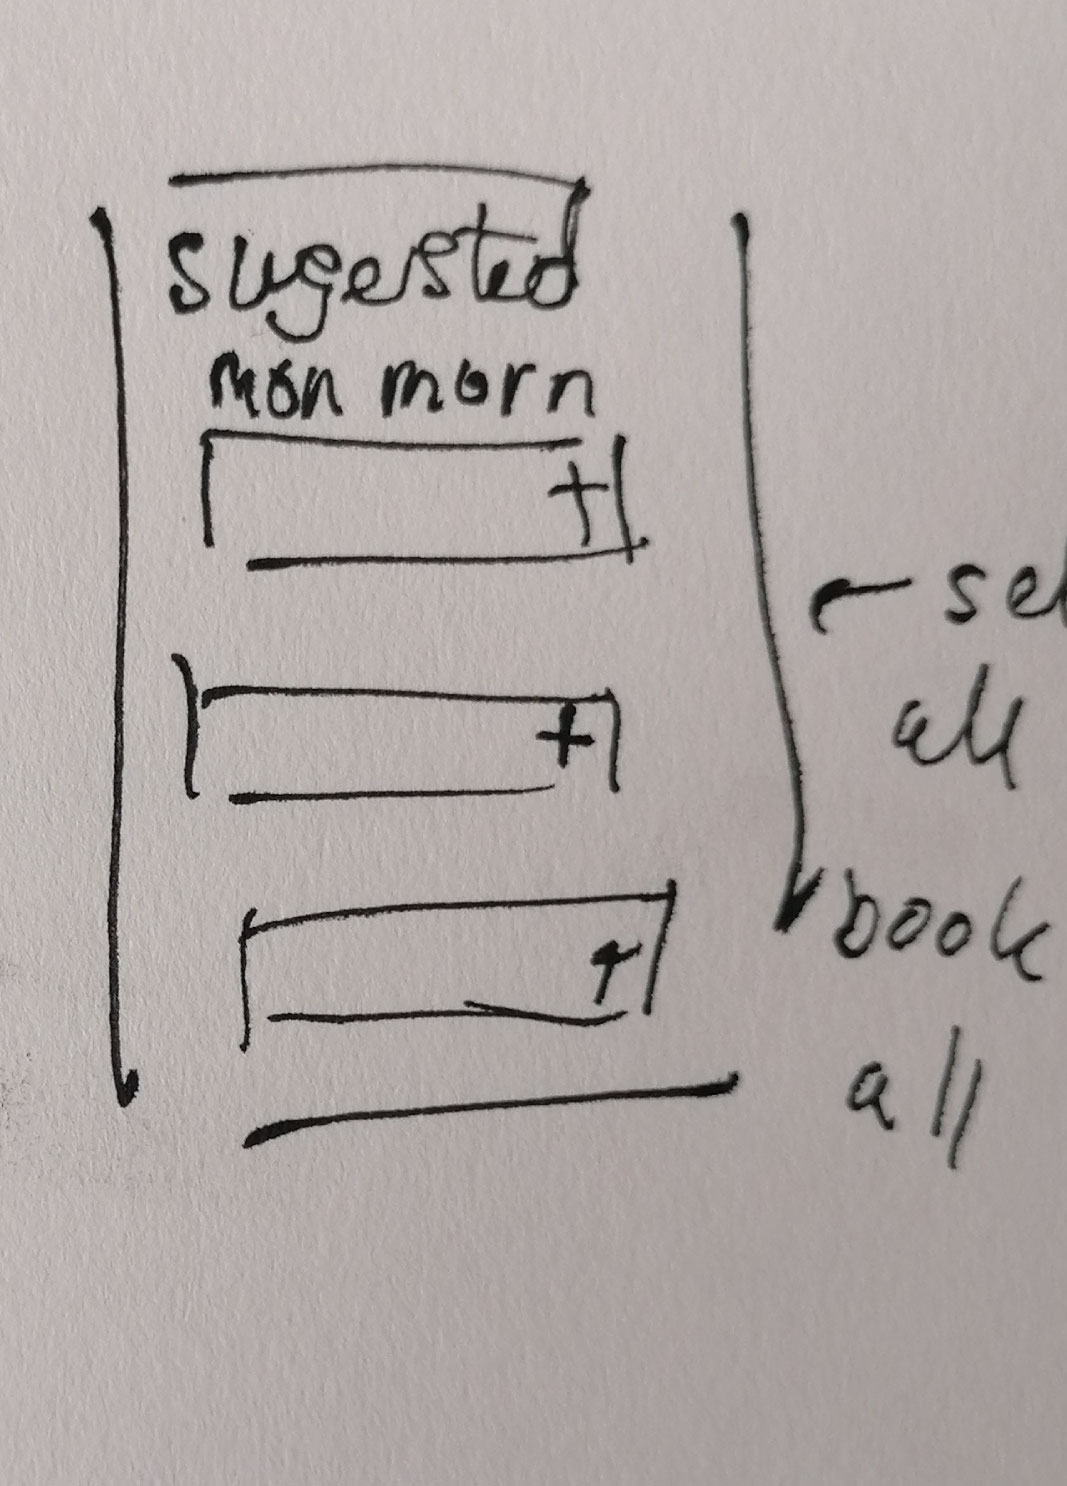 sugested
mon morn
+
+
+
← sel
all
book
all